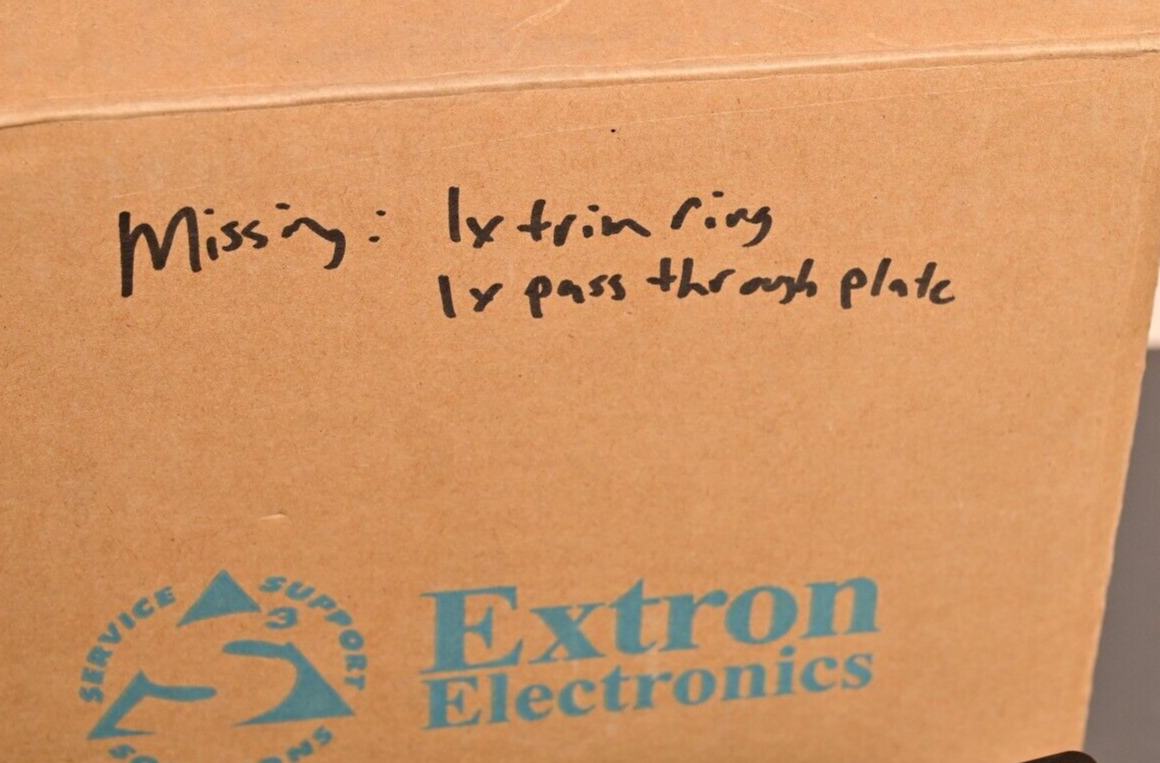 Missing: 1x trim ring
1x pass through plate
SERVICE SUPPORT
3
Extron
Electronics